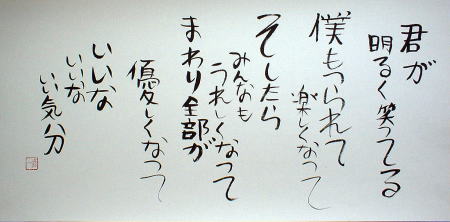 君が
明るく笑ってる
僕もつられて
楽しくなって
そしたら
みんなも
うれしくなって
まわり全部が
優しくなって
いいな
いいな
いい気分